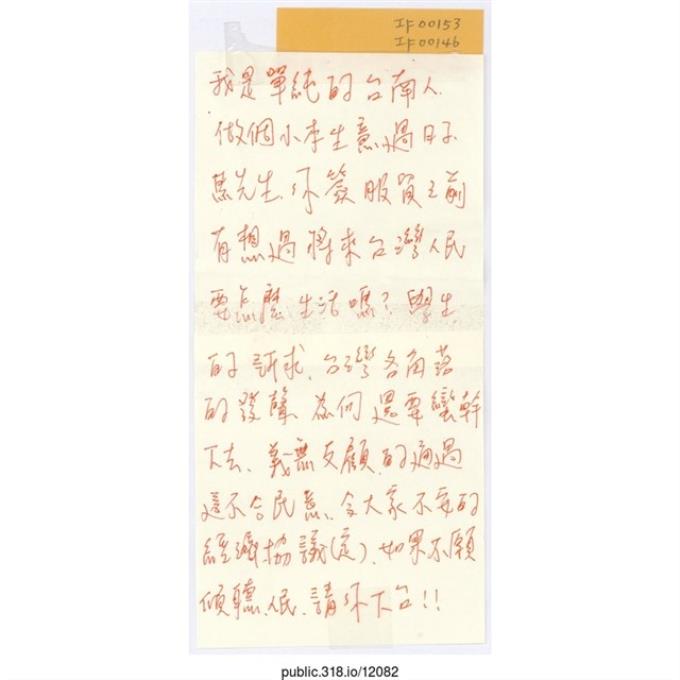 IF00153
IF00146
我是單純的台南人.
做個小本生意過日子
馬先生、你簽服貿之前
有想過將來台灣人民
要怎麼生活嗎? 學生
的訴求、台灣各角落
的發聲、為何還要蠻幹
下去、義無反顧的通過
這不合民意、令大家不安的
經濟協議(定)、如果不願
傾聽人民、請你下台!!
public.318.io/12082